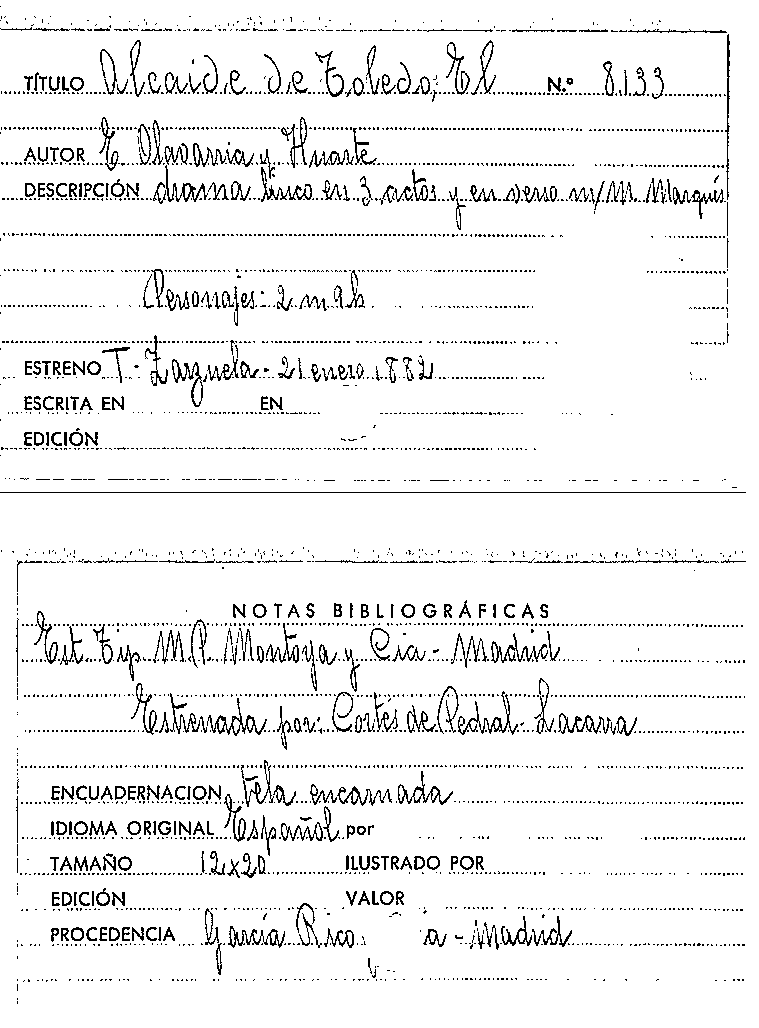 TÍTULO Alcaide de Toledo, El N.º 8.133
AUTOR E. Olavarria y Huarte
DESCRIPCIÓN drama lírico en 3 actos y en verso m/ M. Marqués
Personajes: 2 m 9 h
ESTRENO T. Zarzuela - 21 enero 1882
ESCRITA EN EN
EDICIÓN
NOTAS BIBLIOGRÁFICAS
Est. Tip M.P. Montoya y Cía - Madrid
Estrenada por: Cortés de Pedral - Lacarra
ENCUADERNACION tela encarnada
IDIOMA ORIGINAL Español por
TAMAÑO 12x20 ILUSTRADO POR
EDICIÓN VALOR
PROCEDENCIA García Rico - Madrid